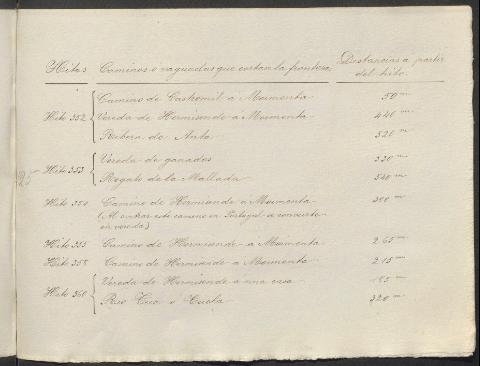 Hitos Caminos o vaguadas que cortan la frontera. Distancias a partir
del hito.
Camino de Castromil a Moimenta 50 m
Hito 352 Vereda de Hermisende a Moimenta 440 m
Ribera de Anta 520 m
Vereda de ganados 330 m
Hito 353
Regato de la Mallada 540 m
Hito 354 Camino de Hermisende a Moimenta 300 m
(Al entrar este camino en Portugal se convierte
en vereda)
Hito 355 Camino de Hermisende a Moimenta 265 m
Hito 358 Camino de Hermisende a Moimenta 215 m
Vereda de Hermisende a una casa 185 m
Hito 360
Rio Tua o Cuela 320 m